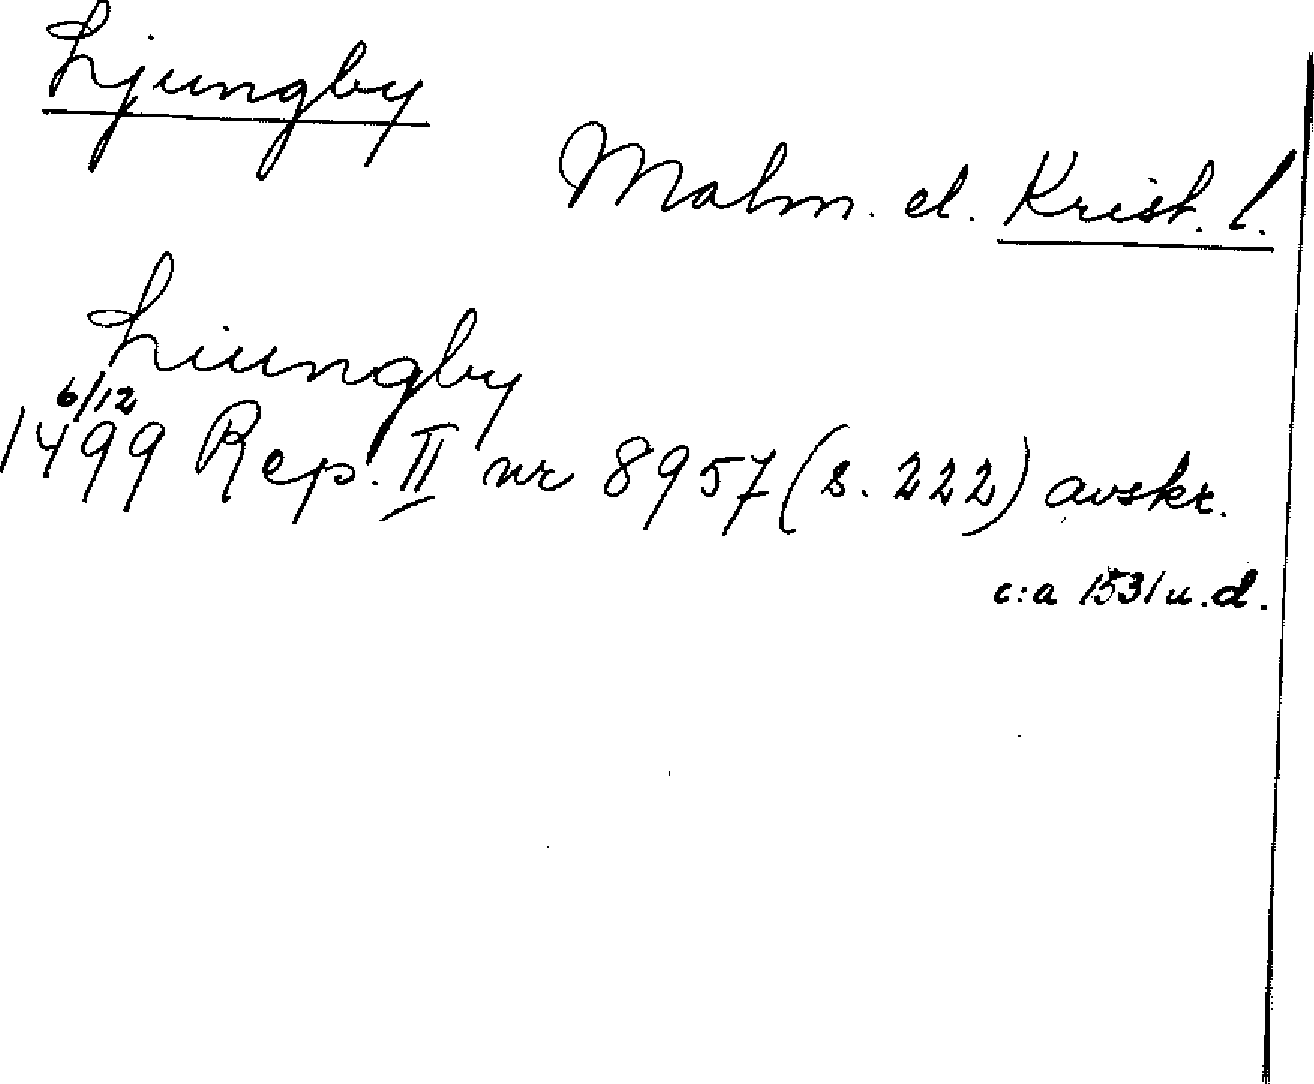 Ljungby
Malm. el. Krist. l.
Liungby
6/12
1499 Rep. II nr 8957 (s. 222) avskr.
c:a 1531 u.d.